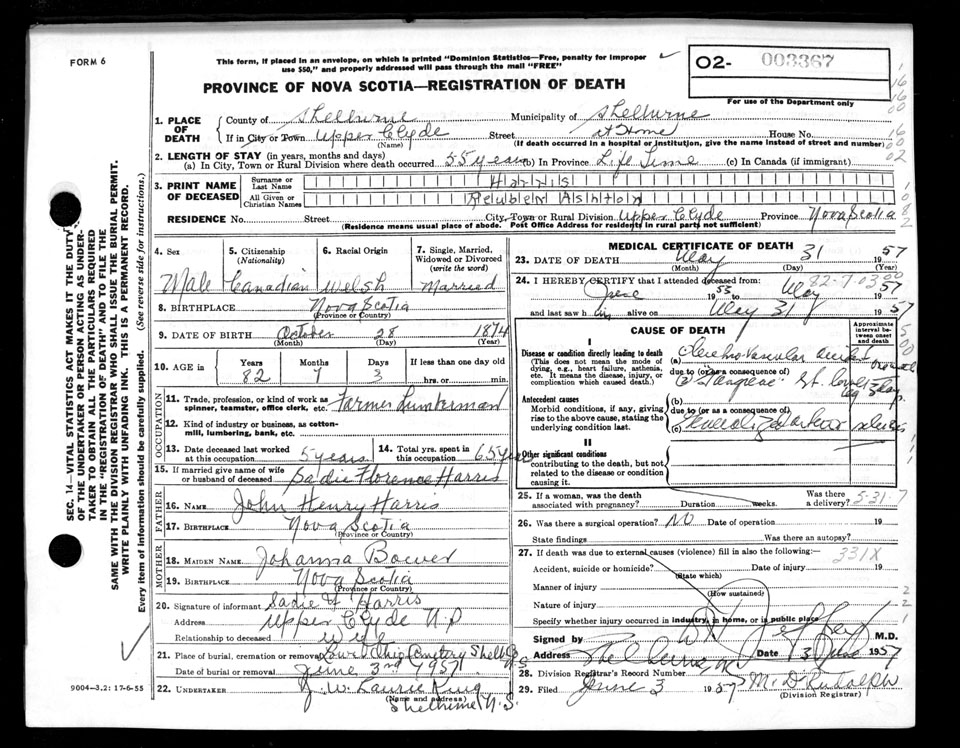 FORM 6
This form, if placed in an envelope, on which is printed "Dominion Statistics—Free, penalty for improper
use $50," and properly addressed will pass through the mail "FREE"
O2- 003367
For use of the Department only
PROVINCE OF NOVA SCOTIA—REGISTRATION OF DEATH
1. PLACE OF DEATH
County of Shelburne Municipality of Shelburne
If in City or Town Upper Clyde Street at Home House No.
(Name) (If death occurred in a hospital or institution, give the name instead of street and number)
2. LENGTH OF STAY (in years, months and days)
(a) In City, Town or Rural Division where death occurred 55 years (b) In Province Life Time (c) In Canada (if immigrant)
3. PRINT NAME OF DECEASED
Surname or Last Name Harris
All Given or Christian Names Reuben Ashton
RESIDENCE No. Street City, Town or Rural Division Upper Clyde Province Nova Scotia
(Residence means usual place of abode. Post Office Address for residents in rural parts not sufficient)
4. Sex 5. Citizenship (Nationality) 6. Racial Origin 7. Single, Married, Widowed or Divorced (write the word)
Male Canadian Welsh Married
8. BIRTHPLACE Nova Scotia
(Province or Country)
9. DATE OF BIRTH October 28 1874
(Month) (Day) (Year)
10. AGE in Years Months Days If less than one day old
82 7 3 hrs. or min.
OCCUPATION
11. Trade, profession, or kind of work as spinner, teamster, office clerk, etc. Farmer Lumberman
12. Kind of industry or business, as cotton-mill, lumbering, bank, etc.
13. Date deceased last worked at this occupation 5 years 14. Total yrs. spent in this occupation 65 years
15. If married give name of wife or husband of deceased Sadie Florence Harris
FATHER
16. NAME John Henry Harris
17. BIRTHPLACE Nova Scotia
(Province or Country)
MOTHER
18. MAIDEN NAME Johanna Bower
19. BIRTHPLACE Nova Scotia
(Province or Country)
20. Signature of informant Sadie F Harris
Address Upper Clyde N.S
Relationship to deceased Wife
21. Place of burial, cremation or removal Cemetery Shelb N.S
Date of burial or removal June 3rd 1957
22. UNDERTAKER J. W.
(Name and address)
Shelburne N.S.
MEDICAL CERTIFICATE OF DEATH
23. DATE OF DEATH May 31 1957
(Month) (Day) (Year)
82-7-03 00
24. I HEREBY CERTIFY that I attended deceased from:
June 1955 to May 1957
and last saw him alive on May 31 1957
CAUSE OF DEATH
Approximate interval between onset and death
I
Disease or condition directly leading to death
(This does not mean the mode of dying, e.g., heart failure, asthenia, etc. It means the disease, injury, or complication which caused death.)
due to (or as a consequence of)
Gangrene
Antecedent causes
Morbid conditions, if any, giving rise to the above cause, stating the underlying condition last.
(b)
due to (or as a consequence of)
(c)
II
Other significant conditions
contributing to the death, but not related to the disease or condition causing it.
25. If a woman, was the death associated with pregnancy? Duration weeks. Was there a delivery? 5-31-7
26. Was there a surgical operation? No Date of operation 19
State findings Was there an autopsy?
27. If death was due to external causes (violence) fill in also the following:—
331X
Accident, suicide or homicide? Date of injury 19
(State which)
Manner of injury
(How sustained)
Nature of injury
Specify whether injury occurred in industry, in home, or in public place
Signed by M.D.
Address Shelburne Date 3 June 1957
28. Division Registrar's Record Number
29. Filed June 3 1957 M. D Rudolph
(Division Registrar)
9004-3.2: 17-6-55
SEC. 14—VITAL STATISTICS ACT MAKES IT THE DUTY
OF THE UNDERTAKER OR PERSON ACTING AS UNDER-
TAKER TO OBTAIN ALL THE PARTICULARS REQUIRED
IN THE "REGISTRATION OF DEATH" AND TO FILE THE
SAME WITH THE DIVISION REGISTRAR WHO SHALL ISSUE THE BURIAL PERMIT.
WRITE PLAINLY WITH UNFADING INK. THIS IS A PERMANENT RECORD.
Every item of information should be carefully supplied. (See reverse side for instructions.)